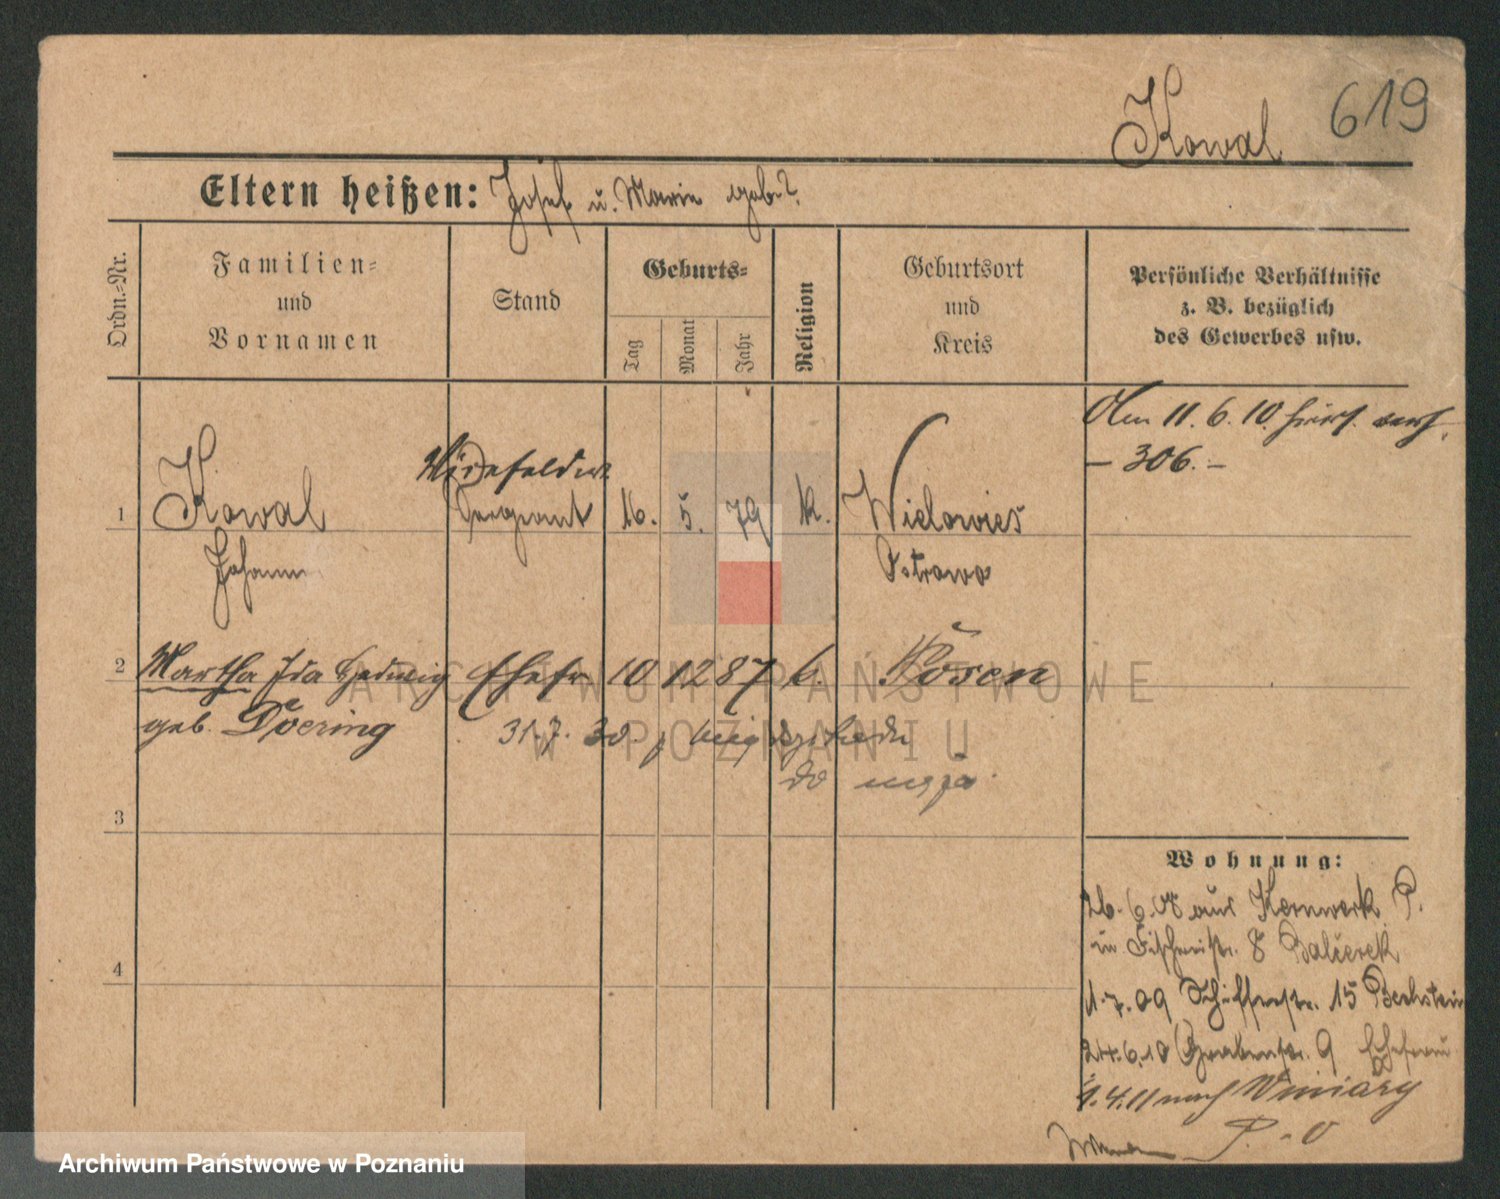 Kowal 619
Eltern heißen: Josef u. Marie geb. ?
Ordn.-Nr.
Familien-
und
Vornamen
Stand
Geburts-
Tag
Monat
Jahr
Religion
Geburtsort
und
Kreis
Persönliche Verhältnisse
z. B. bezüglich
des Gewerbes usw.
Am 11.6.10. heir.
— 306. —
1 Kowal Sergeant 16. 5. 79 k. Wielowies
Johann Ostrowo
2 Martha Ida Hedwig Ehefr. 10 12 87 k. Posen
geb. Doering 31.7.30
do męża
3
4
Wohnung:
26.6.08 aus Kernwerk P.
in Fischereistr. 8 Balcerek
1.7.09 Schifferstr. 15 Bechstein
24.6.10 Grabenstr. 9 Ehefrau
1.4.11 nach Winiary
P.-O
ARCHIWUM PAŃSTWOWE
W POZNANIU
Archiwum Państwowe w Poznaniu